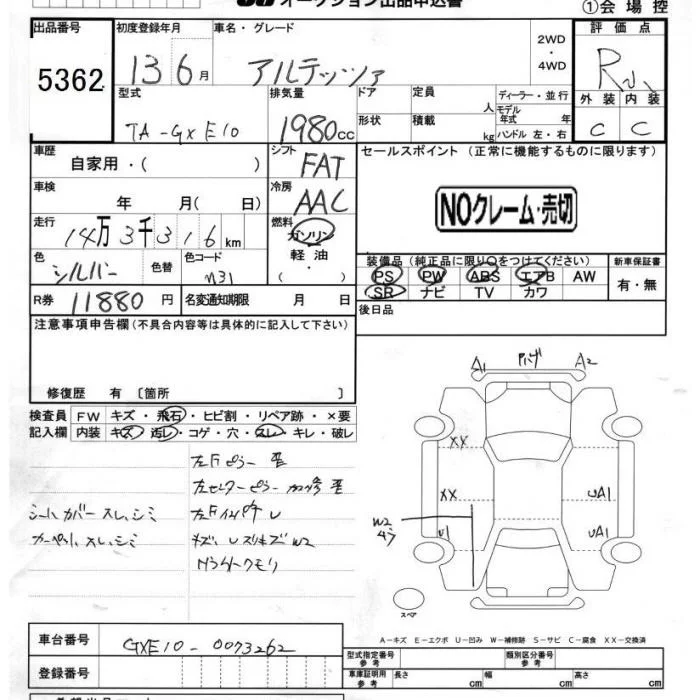 オークション出品申込書
①会場控
出品番号 初度登録年月 車名・グレード 評価点
5362 13 6月 アルテッツァ 2WD・4WD R
型式 排気量 ドア 定員 人 ディーラー・並行 外装 内装
TA-GXE10 1980cc 形状 積載 kg モデル年式 年 ハンドル 左・右 C C
車歴 シフト セールスポイント(正常に機能するものに限ります)
自家用・( ) FAT
車検 冷房 NOクレーム・売切
年 月( 日) AAC
走行 燃料
14万3千316km ガソリン
軽油
色 色替 色コード 装備品(純正品に限り○をつけてください) 新車保証書
シルバー N31 PS PW ABS エアB AW 有・無
R券 11880円 名変通知期限 月 日 SR ナビ TV カワ
注意事項申告欄(不具合内容等は具体的に記入して下さい) 後日品
修復歴 有〔箇所 〕
A1 A2
検査員 FW キズ・飛石・ヒビ割・リペア跡・×要
記入欄 内装 キズ・汚レ・コゲ・穴・スレ・キレ・破レ
XX
左Fピラー
左センターピラー
XX UA1
シートカバー スレ、シミ
カーペット スレ、シミ
W2 U1 UA1
キズ、
スペア
A−キズ E−エクボ U−凹み W−補修跡 S−サビ C−腐食 XX−交換済
車台番号 GXE10-0073262
型式指定番号 参考 類別区分番号 参考
登録番号
車庫証明用 参考 長さ cm 幅 cm 高さ cm